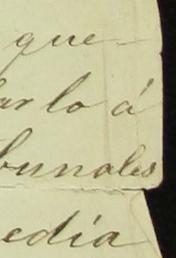 que
arlo á
bunales
edia